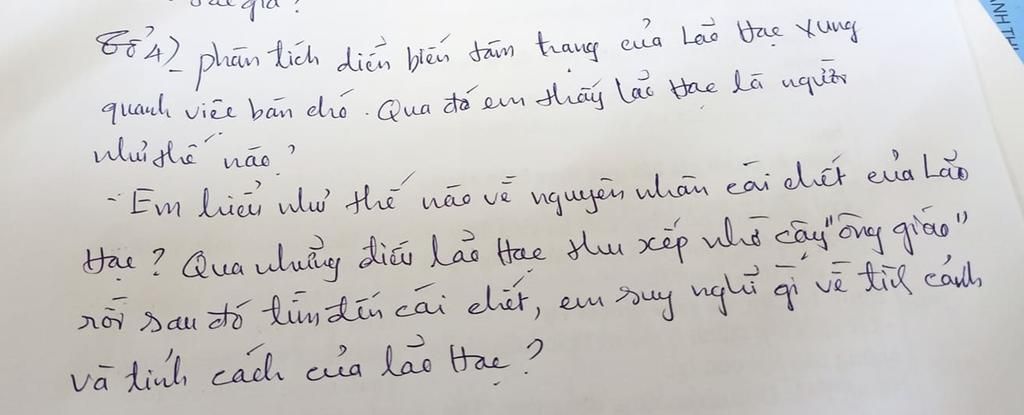 giả?
Tổ 4) phân tích diễn biến tâm trạng của Lão Hạc xung
quanh việc bán chó. Qua đó em thấy lão Hạc là người
như thế nào?
- Em hiểu như thế nào về nguyên nhân cái chết của Lão
Hạc? Qua những điều lão Hạc thu xếp nhờ cậy "ông giáo"
rồi sau đó tìm đến cái chết, em suy nghĩ gì về tình cảnh
và tính cách của lão Hạc?